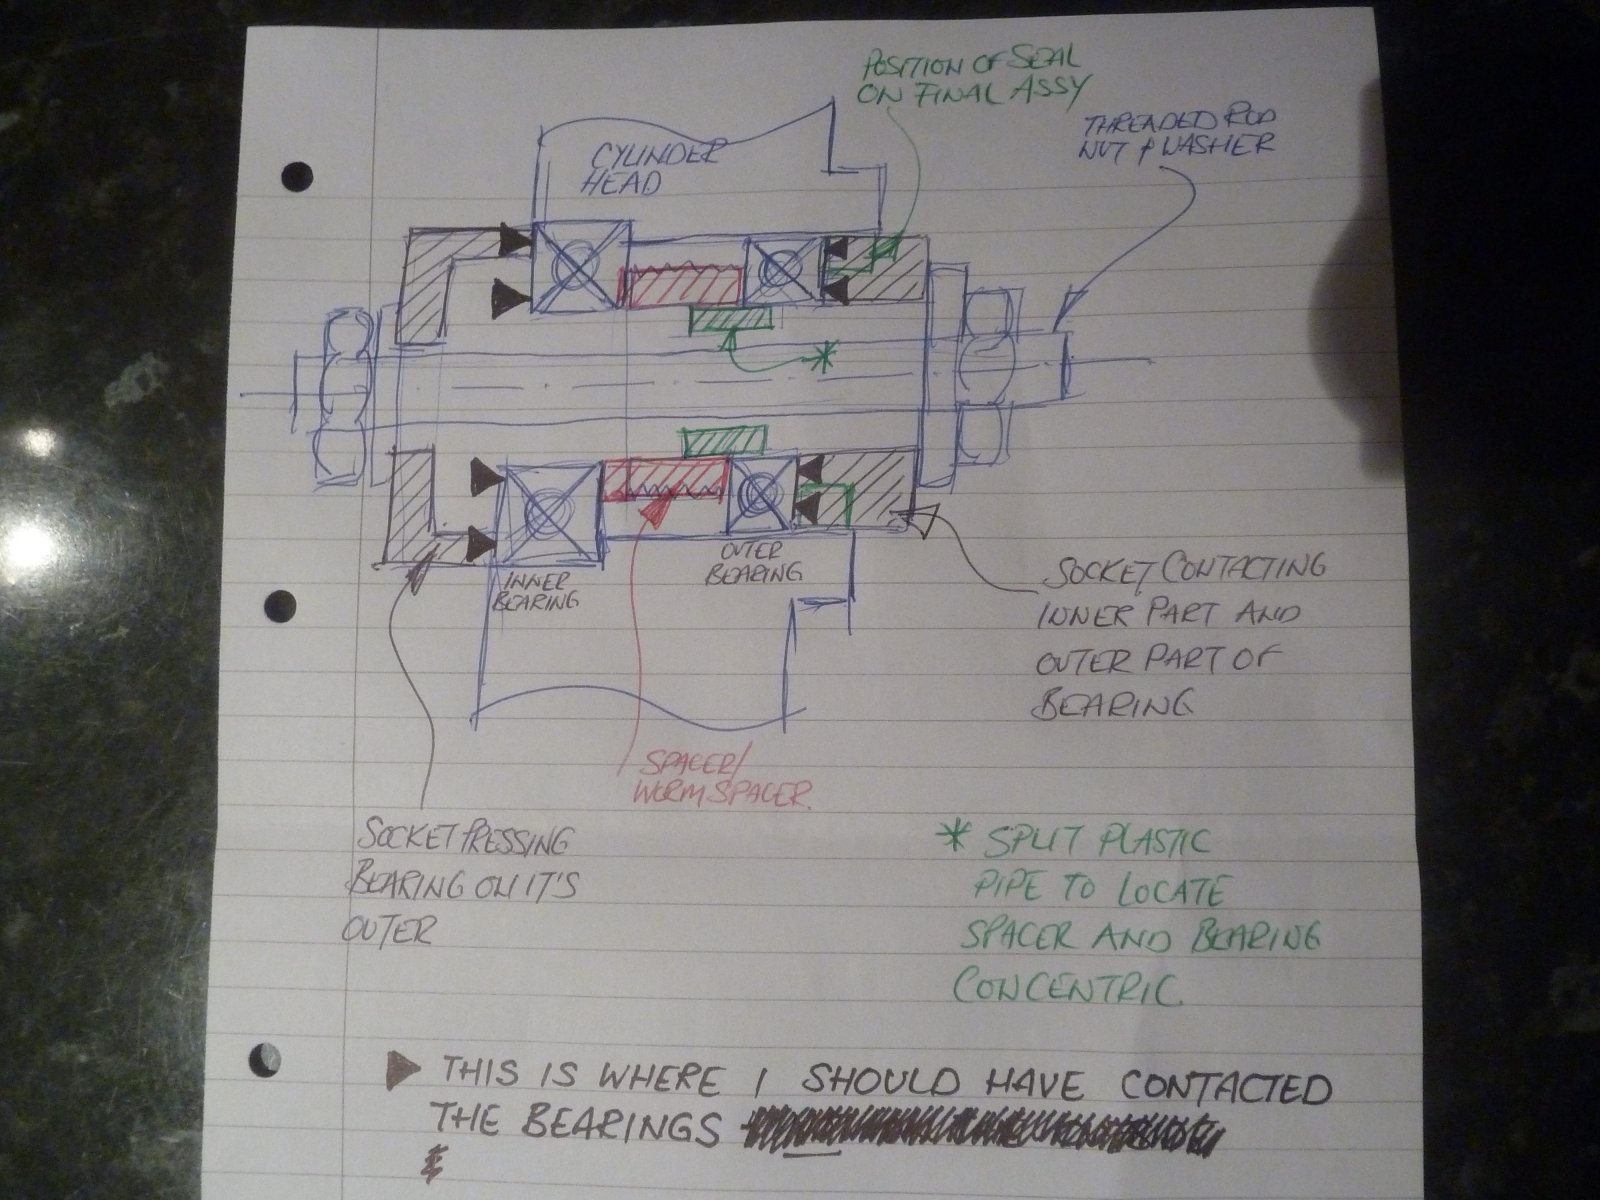 POSITION OF SEAL
ON FINAL ASSY
THREADED ROD
NUT & WASHER
CYLINDER
HEAD
INNER
BEARING
OUTER
BEARING
SOCKET CONTACTING
INNER PART AND
OUTER PART OF
BEARING
SPACER/
WORM SPACER.
SOCKET PRESSING
BEARING ON IT'S
OUTER
* SPLIT PLASTIC
PIPE TO LOCATE
SPACER AND BEARING
CONCENTRIC.
THIS IS WHERE I SHOULD HAVE CONTACTED
THE BEARINGS